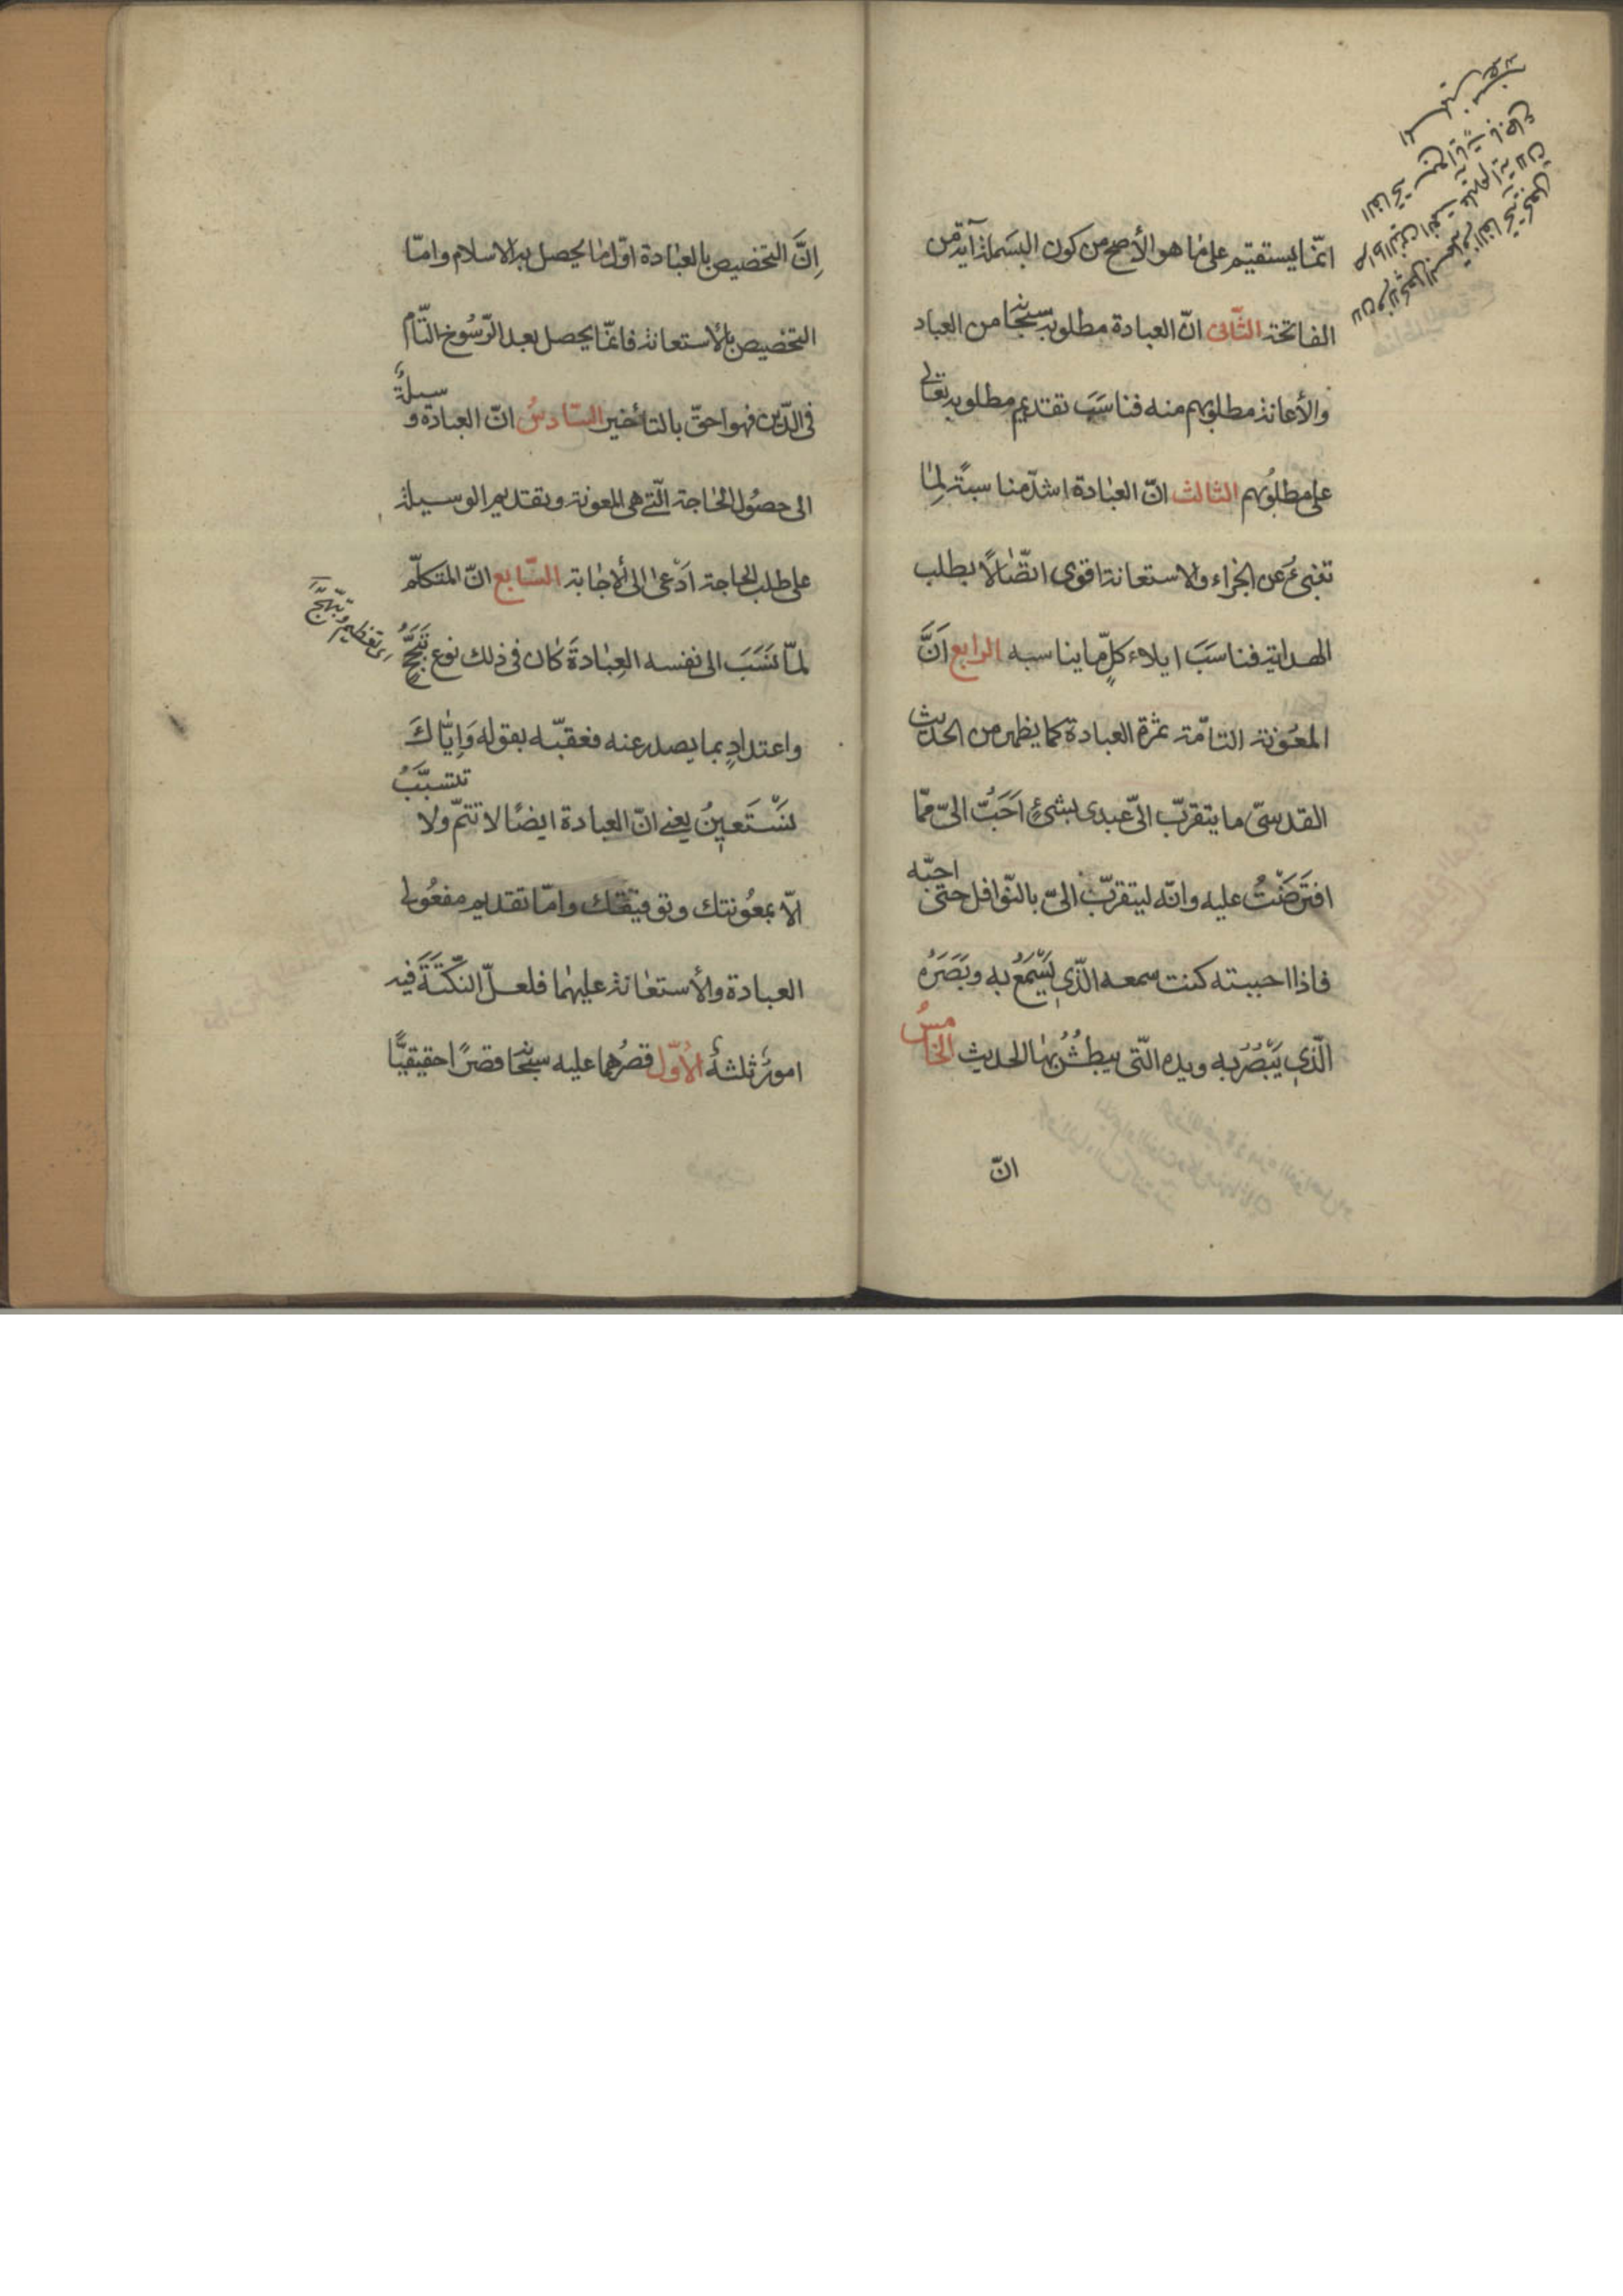 انّما يستقيم على ما هو الأصح من كون البسملة آية من
الفاتحة الثّانى انّ العبادة مطلوبه سبحٰنه من العباد
والأعانة مطلوبهم منه فناسَبَ تقديم مطلوبه تعالى
على مطلوبُهم الثالث انّ العبادة اشدّ مناسبةً لِمٰا
تنبئ عن الجزاء والاستعانة اقوى اتّصٰالاً بطلب
الهداية فناسَبَ ايلاء كلٍّ ما يناسبه الرابع اَنَّ
المعُونة التامّة ثمرة العبادة كما يظهر من الحديث
القدسىّ ما يتقرّب الىّ عبدى بشئٍ اَحَبُّ الىّ ممّا
افتَرَضْتُ عليه وانّه ليتقرّب الىّ بالنّوافل حتى احبّه
فاذا احببته كنت سمعه الّذى يَسْمَعُ به وبَصَرُه
الّذى يَبْصُرُ به ويده الّتى يبطُشُ بهٰا الحديث الخامسُ
انّ
اِنَّ التخصيص بالعبٰادة اوّل مٰا يحصل به الاسلام وامّا
التخصيص بالأستعانة فانمّا يحصل بعد الرّسُوخ التّام
فى الدّين فهو احقّ بالتأخير السّادسُ انّ العبادة وسيلةٌ
الى حصُول الحٰاجة الّتى هى المعونة وتقديم الوسيلة
على طلب الحاجة اَدْعىٰ الى الأجٰابة السّابع انّ المتكلّم
لمّا نَسَبَ الى نفسه العِبٰادةَ كٰان فى ذلك نوع تَبَجُّحٍ
اى تعظيم و
واعتدادٍ بما يصدر عنه فعقبّه بقوله وَاِيّٰاكَ
نَسْتَعينُ يعنى انّ العبادة ايضًا لا تتمّ ولا تتسبَّبُ
الّا بمعُونتك وتوفيقك وامّا تقديم مفعُولى
العبادة والأستعٰانة عليهمٰا فلعلّ النّكتَةَ فيه
امورٌ ثلثةٌ الأوّل قصرُهما عليه سبحٰنه قصرًا حقيقيًّا